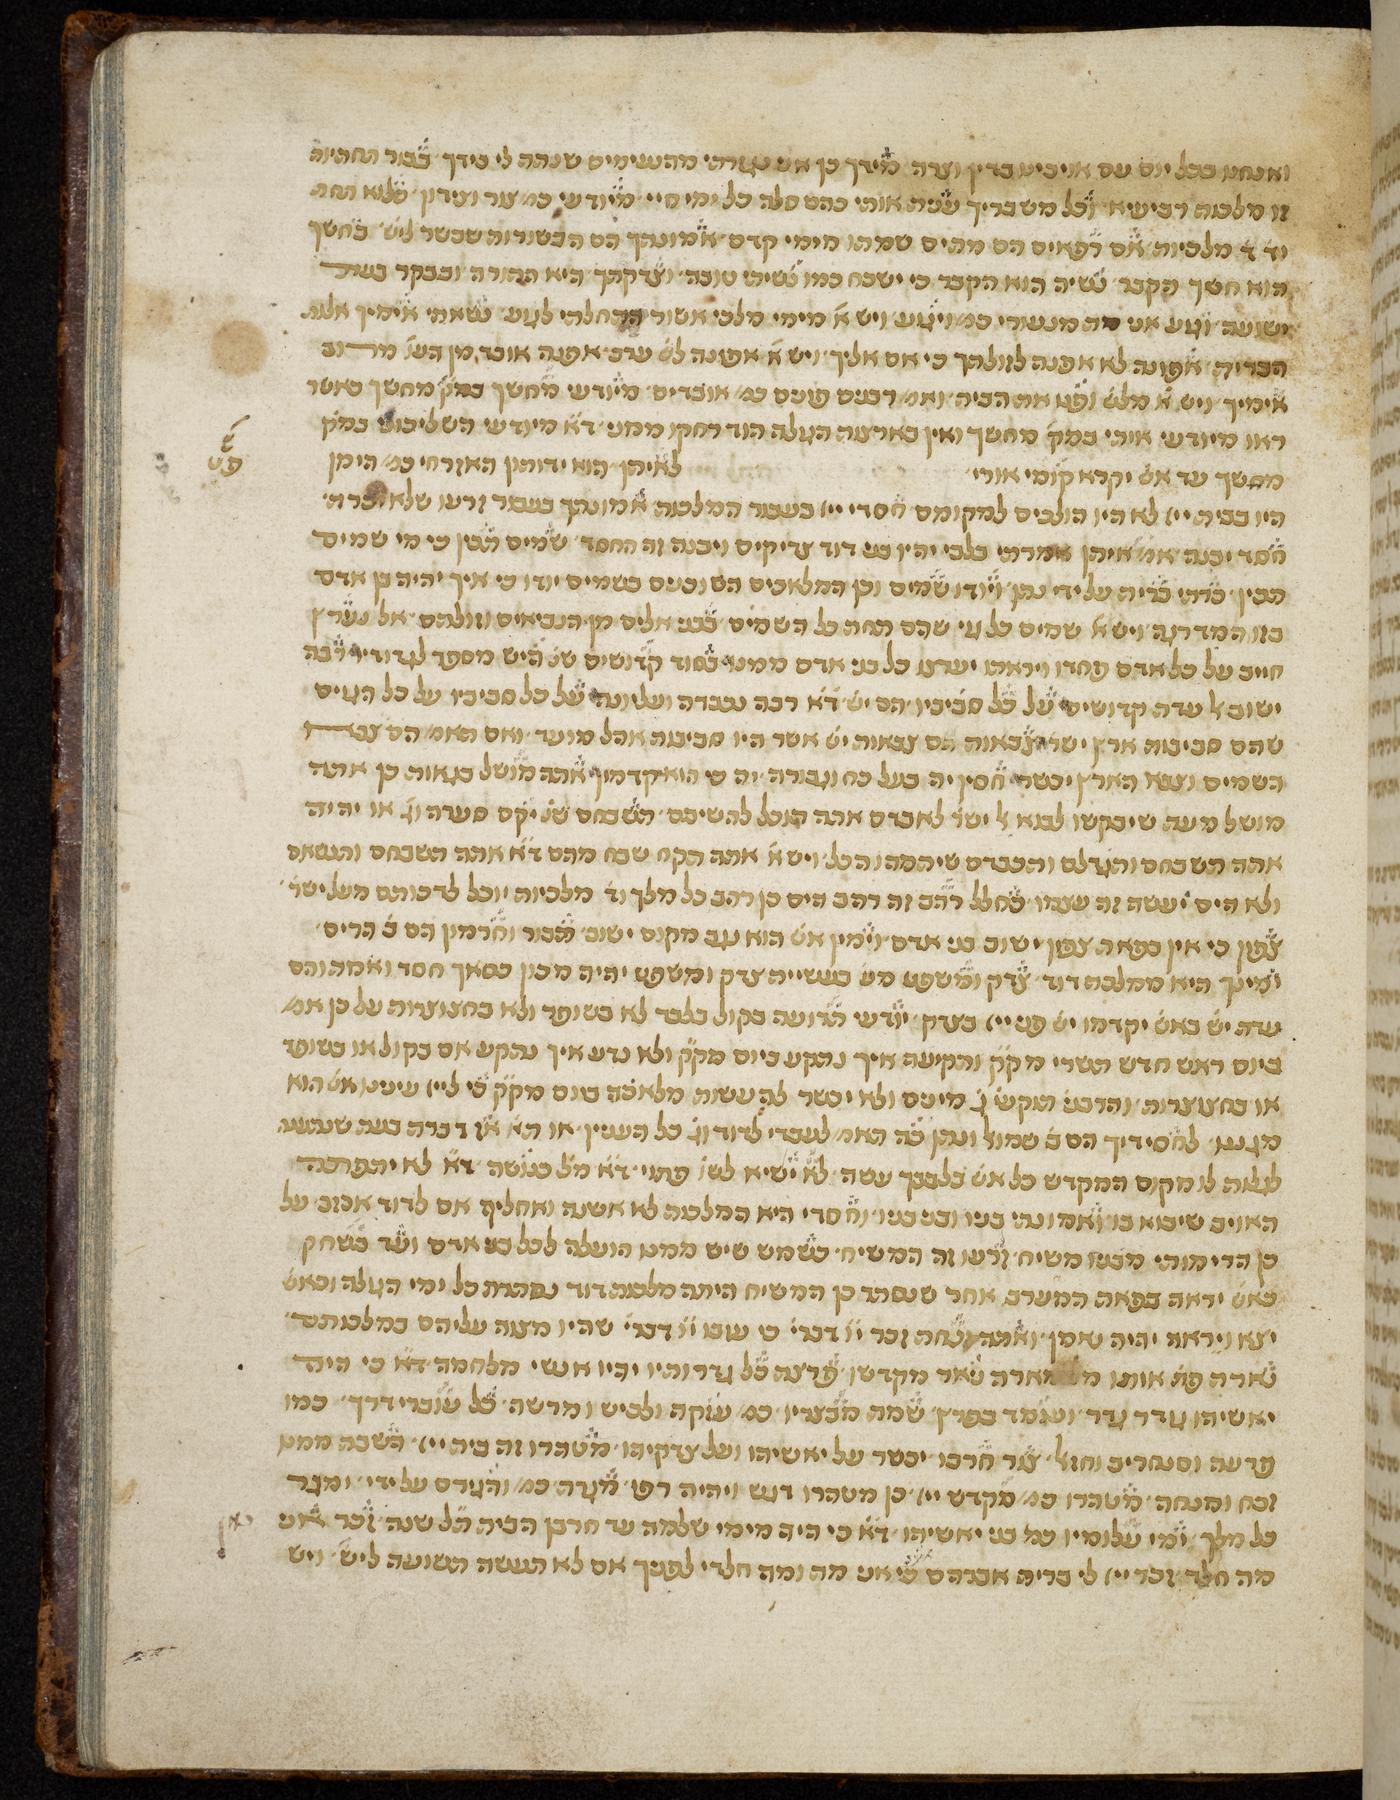 ואנחנו בכל יום עם אויבינו בדין וצרה מידך כן אם נגזרתי מהנעימים שנתת לי בידך בבור תחתיות
זו מלכות רביעית וכל משבריך ענית אותי בהם סלה כל ימי חיי מיודעי כמ׳ צור וצידון כלוא תחת
יד ד׳ מלכיות אם רפאים הם מתים שמתו מימי קדם אמונתך הם הבשורות שבשר ליש׳ בחשך
הוא חשך הקבר נשיה הוא הקבר כי ישכח כמו נשיתי טובה וצדקתך היא התורה ובבקר בעת
ישועה וגוע אני מת מנעורי כמ׳ ויגוע ויש א׳ מימי מלכי אשור התחלתי לגוע נשאתי אימיך אלות
הברית אפונה לא אפנה לזולתך כי אם אליך ויש א׳ אפונה לש׳ ערב אפנה אובד מן העו׳ מרוב
אימיך ויש א׳ מלש׳ ופנו את הבית ואמ׳ רבנים פונים כמ׳ אובדים מיודעי מחשך במק׳ מחשך כאשר
ראו מיודעי אותי במק׳ מחשך ואין בארצות העולם הוד רחקו ממני ד״א מיודעי השליכוני במק׳
מחשך עד אש׳ יקרא קומי אורי לאיתן הוא ידותון האזרחי כמ׳ הימן
היו בבית ייי לא היו הולכים למקומם חסדי ייי בעבור המלכות אמונתך בעבור זרעו שלא יכרת
חסד יבנה אמ׳ איתן אמרתי בלבי יהיו בני דוד צדיקים ויבנה זה החסד שמים תכין כי מי שמים
הכין כרתי ברית על ידי נתן ויודו שמים וכן המלאכים השוכנים בשמים יודו כי איך יהיה בן אדם
בזו המדרגה ויש א׳ שמים כל גוי שהם תחת כל השמים בבני אלים מן הנביאים וזולתם אל נערץ
חייב על כל אדם פחדו ויראתו יערצו כל בני אדם ממנו בסוד קדושים שנ׳ היש מספר לגדודיו רבה
ישוב אל עדת קדושים על כל סביביו הם יש׳ ד״א רבה נכבדה ועליונה על כל סביביו על כל הגוים
שהם סביבות ארץ ישר׳ צבאות הם צבאות יש׳ אשר היו סביבות אהל מועד ואם תאמ׳ הם צבא
השמים וצבא הארץ יכשר חסין יה בעל כח וגבורה יה מי הוא קדמון אתה מושל בגאות כן אתה
מושל מעת שיבקשו לבוא אל ישר׳ לאבדם אתה תוכל להשיבם תשבחם שנ׳ יקם סערה וג׳ או יהיה
אתה תשבחם ותגדלם ותכבדם שיתמהו הכל ויש א׳ אתה תקח שבח מהם ד״א אתה תשבחם ותנשאם
ולא הים יעשה זה שצרו כחלל רהב זה רהב הים כן רהב כל מלך וד׳ מלכיות יוכל לדכותם מעל ישר׳
צפון כי אין בפאת צפון ישוב בני אדם וימין אש׳ הוא נגב מקום ישוב תבור וחרמון הם ב׳ הרים
ימינך היא ממלכת דוד צדק ומשפט מע׳ בעשיית צדק ומשפט יהיה מכון כסאך חסד ואמת והם
עדת יש׳ באש׳ יקדמו יש׳ פני ייי בצדק יודעי תרועה בקול בלבד לא בשופר ולא בחצוצרות על כן אמ׳
ביום ראש חדש תשרי מק״ק ותקיעה איך נתקע ביום מק״ק ולא נדע איך נתקע אם בקול או בשופר
או בחצוצרות והרבנ׳ תוקעי׳ ג׳ מינים ולא יכשר לה׳ עשות מלאכה ביום מק״ק כי לייי עינינו אש׳ הוא
מגננו לחסידיך הם ב׳ שמואל ונתן כה תאמ׳ לעבדי לדוד וג׳ כל הענין או ת״א אז דברת בעת שנתעת
לגלות לו מקום המקדש כל אש׳ בלבבך עשה לא ישיא לשו׳ פתוי ד״א מל׳ כנושה ד״א לא יתפרנס
האויב שיבוא בו ואמונתי בניו ובני בניו וחסדי היא המלכות לא אשנה ואחליף אם לדוד אכזב על
כן הדימותי מבנו משיח זרעו זה המשיח כשמש שיש ממנו תועלת לכל בני אדם ועד בשחק
כאש׳ יראה בפאת המערב אחר שנסתר כן המשיח היתה מלכות דוד נסתרת כל ימי הגלות וכאש׳
יצא ויראה יהיה נאמן ואתה זנחת זכר י״ו דברי׳ כי עזבו י״ו דברי׳ שהיו מצוה עליהם במלכותם
נארת פת׳ אותו מארת נאר מקדשו פרצת כל גדרותיו יהיו אנשי מלחמה ד״א כי היה
יאשיהו גודר גדר ועומד בפרץ שמת מבצריו כמ׳ עזקה ולכיש ומרשה כל עוברי דרך כמו
פרעה וסנחריב וחזאל צור חרבו יכשר על יאשיהו ועל צדקיהו מטהרו זה בית ייי השבת ממנו
זבח ומנחה מטהרו כמ׳ מקדש ייי כן מטהרו דגש ויהיה רפו׳ מגרת כמ׳ ותגירם על ידי ומגר
כל מלך ימי עלומיו כמ׳ בני יאשיהו ד״א כי היה מימי שלמה עד חרבן הבית ת״ל שנה זכר אני
מה חלד זכר ייי לי ברית אברהם כי אני מה ומה חלדי לפניך אם לא תעשה תשועה ליש׳ ויש